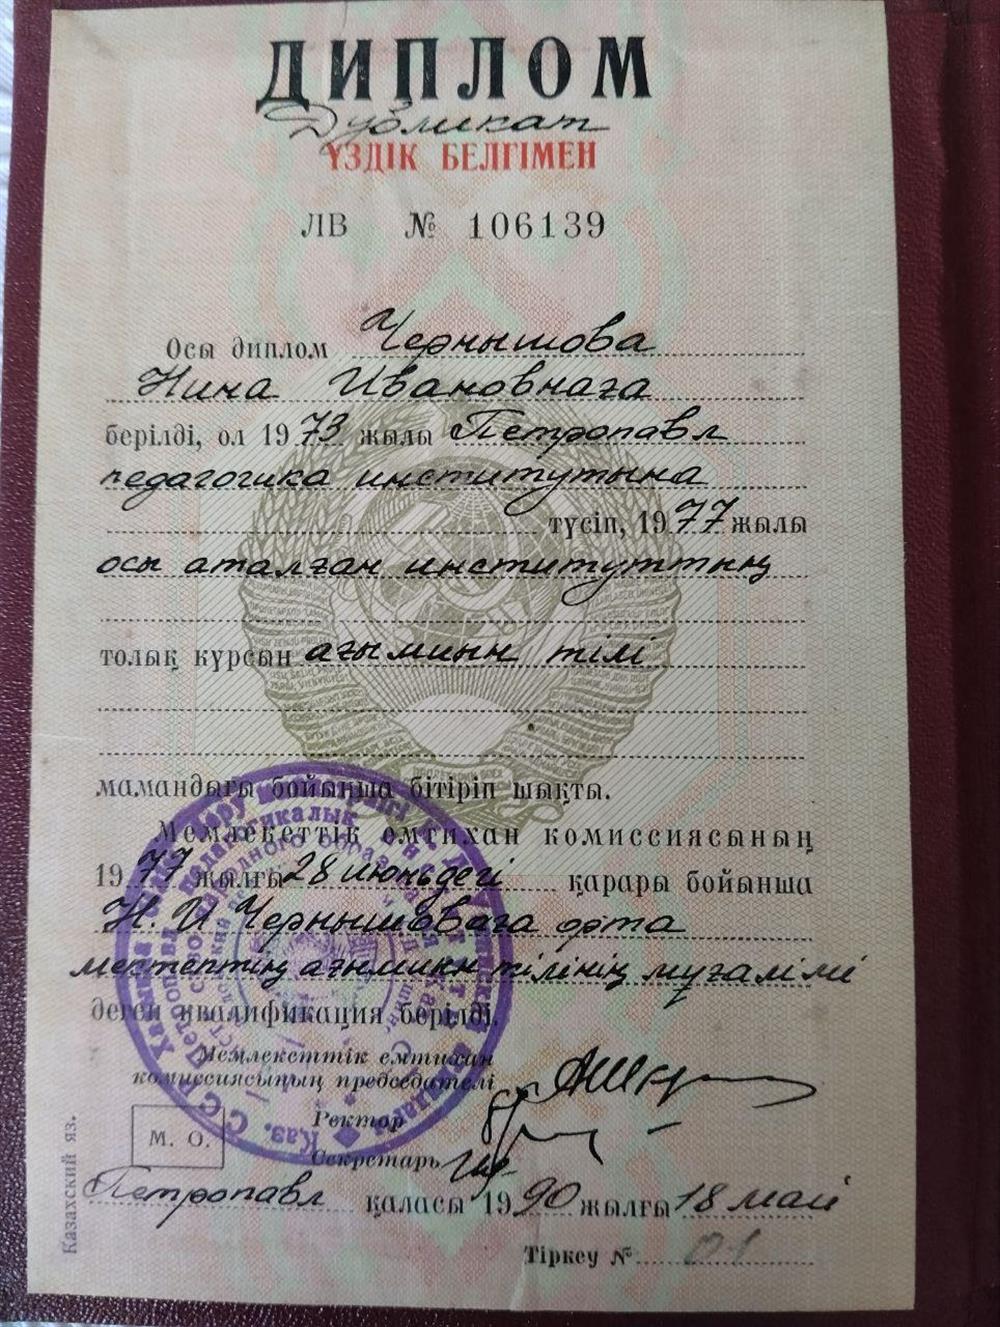 ДИПЛОМ
Дубликат
ҮЗДІК БЕЛГІМЕН
ЛВ № 106139
Осы диплом Чернышова
Нина Ивановнаға
берілді, ол 1973 жылы Петропавл
педагогика институтына
түсіп, 1977 жылы
осы аталған институттың
толық курсын ағылшын тілі
мамандығы бойынша бітіріп шықты.
Мемлекеттік емтихан комиссиясының
1977 жылғы 28 июньдегі қарары бойынша
Н. И Чернышоваға орта
мектептің ағылшын тілінің мұғалімі
деген квалификация берілді.
Мемлекеттік емтихан
комиссиясының председателі
Ректор
М. О.
Секретарь
Петропавл қаласы 1990 жылғы 18 май
Тіркеу № 01
Казахский яз.